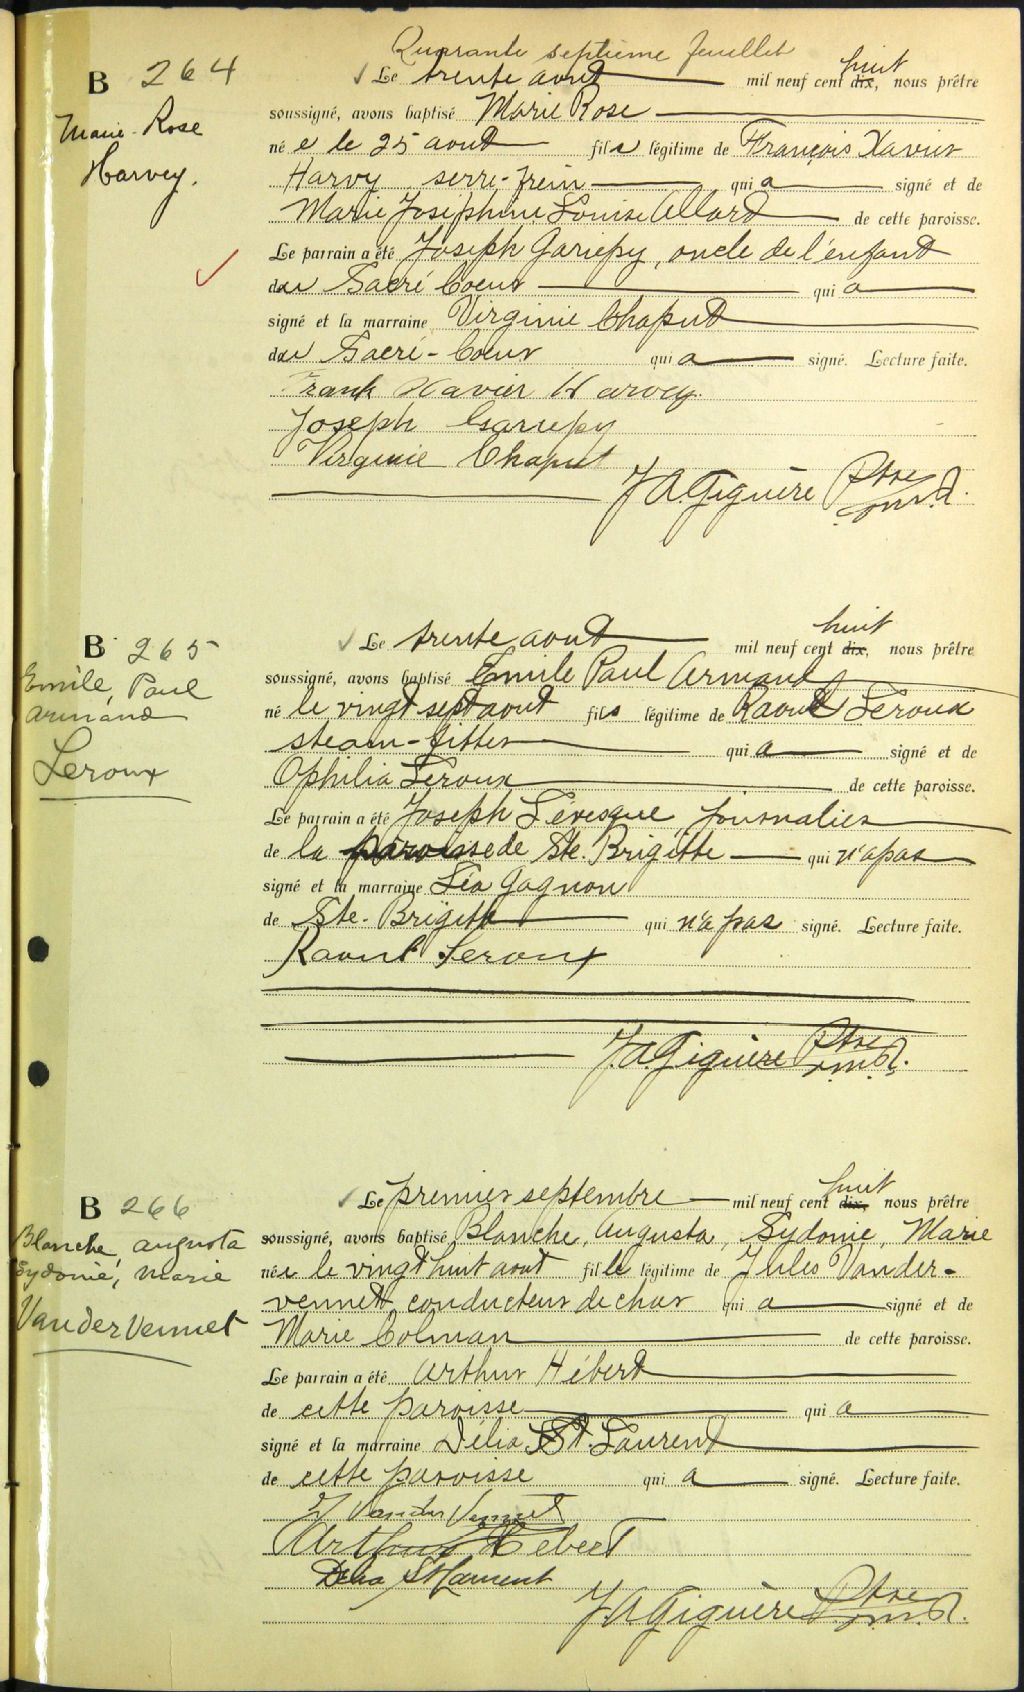 Quarante septième feuillet
B 264
Marie-Rose
Harvey.
Le trente août mil neuf cent dix, huit nous prêtre
soussigné, avons baptisé Marie Rose
né e le 25 août fille légitime de François Xavier
Harvy serre-frein qui a signé et de
Marie Joséphine Louise Allard de cette paroisse.
Le parrain a été Joseph Gariepy, oncle de l'enfant
du Sacré Coeur qui a
signé et la marraine Virginie Chaput
du Sacré-Coeur qui a signé. Lecture faite.
Frank Xavier Harvey.
Joseph Garriepy
Virginie Chaput
J A. Giguère Ptre
o.m.i.
B 265
Emile, Paul
Armand
Leroux
Le trente août mil neuf cent dix, huit nous prêtre
soussigné, avons baptisé Emile Paul Armand
né le vingt sept août fils légitime de Raoul Leroux
steam-fitter qui a signé et de
Ophilia Leroux de cette paroisse.
Le parrain a été Joseph Lévesque journalier
de la paroisse de Ste. Brigitte qui n'a pas
signé et la marraine Léa Gagnon
de Ste-Brigitte qui n'a pas signé. Lecture faite.
Raoul Leroux
J. A. Giguère Ptre
o.m.i.
B 266
Blanche, Augusta
Sydonie, Marie
VanderVennet
Le premier septembre mil neuf cent dix, huit nous prêtre
soussigné, avons baptisé Blanche, Augusta, Sydonie, Marie
née le vingt huit août fille légitime de Jules Vander-
vennet, conducteur de char qui a signé et de
Marie Colman de cette paroisse.
Le parrain a été Arthur Hébert
de cette paroisse qui a
signé et la marraine Délia St. Laurent
de cette paroisse qui a signé. Lecture faite.
J VanderVennet
Arthur Hebert
Delia St Laurent
J. A Giguère Ptre
o.m.i.